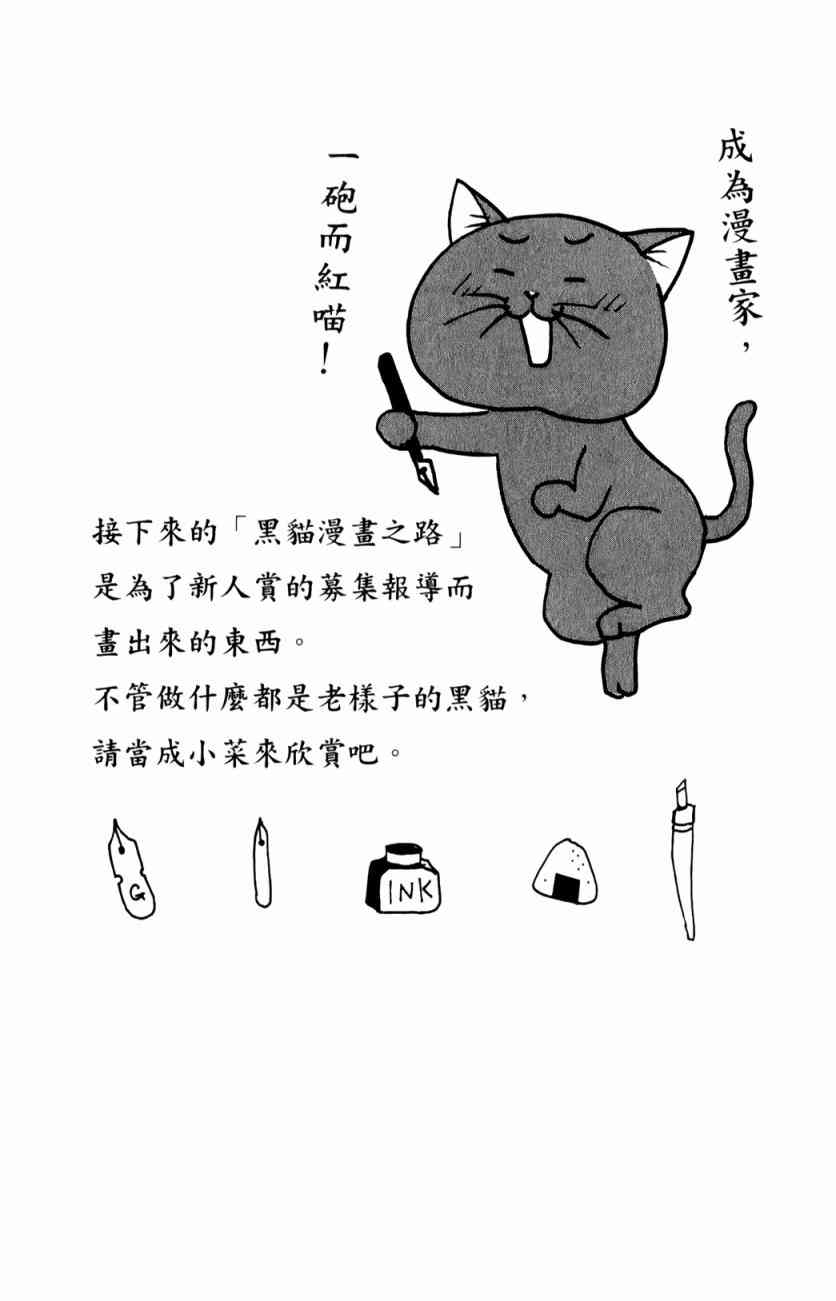 成為漫畫家，
一砲而紅喵！
接下來的「黑貓漫畫之路」
是為了新人賞的募集報導而
畫出來的東西。
不管做什麼都是老樣子的黑貓，
請當成小菜來欣賞吧。
G
INK